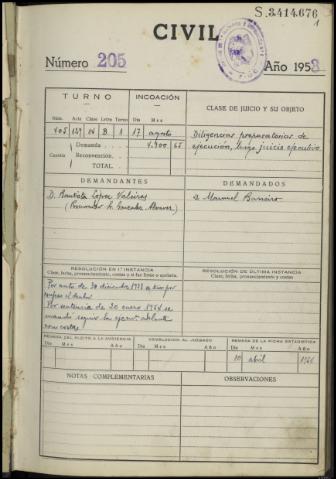 S.3414.676
1
CIVIL
Número 205
Año 1953
TURNO
INCOACIÓN
CLASE DE JUICIO Y SU OBJETO
Núm. Acta Clase Letra Turno Día Mes
405 129 16 B. 1 17 agosto
Diligencias preparatorias de
ejecución, luego juicio ejecutivo
Cuantía
Demanda 4.900 65
Reconvención.
TOTAL.
DEMANDANTES
DEMANDADOS
D. Bautista López Valeiras
(Procurador A. González Alvarez)
D. Manuel Barreiro
RESOLUCIÓN EN 1.ª INSTANCIA
Clase, fecha, pronunciamiento, costas y si fue firme o apelada.
RESOLUCIÓN DE ÚLTIMA INSTANCIA
Clase, fecha, pronunciamiento y costas
Por auto de 29 diciembre 1953 se tuvo por
confeso al deudor
Por sentencia de 20 enero 1954 se
mandó seguir la ejecución adelante
con costas
REMESA DEL PLEITO A LA AUDIENCIA
DEVOLUCIÓN AL JUZGADO
REMESA DE LA FICHA ESTADÍSTICA
Día Mes Año
Día Mes Año
Día Mes Año
10 abril
NOTAS COMPLEMENTARIAS
OBSERVACIONES